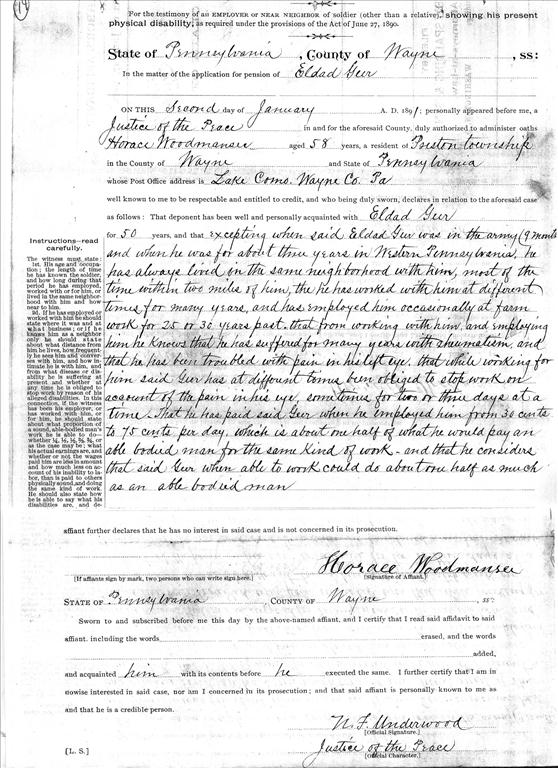 14
For the testimony of an EMPLOYER OR NEAR NEIGHBOR of soldier (other than a relative), showing his present
physical disability, as required under the provisions of the Act of June 27, 1890.
State of Pennsylvania, County of Wayne, SS:
In the matter of the application for pension of Eldad Geer
ON THIS Second day of January A. D. 1891; personally appeared before me, a
Justice of the Peace in and for the aforesaid County, duly authorized to administer oaths
Horace Woodmansee aged 58 years, a resident of Preston township
in the County of Wayne and State of Pennsylvania
whose Post Office address is Lake Como. Wayne Co. Pa
well known to me to be respectable and entitled to credit, and who being duly sworn, declares in relation to the aforesaid case
as follows: That deponent has been well and personally acquainted with Eldad Geer
for 50 years, and that excepting when said Eldad Geer was in the army (9 months
and when he was for about three years in Western Pennsylvania, he
has always lived in the same neighborhood with him, most of the
time within two miles of him, the he has worked with him at different
times for many years, and has employed him occasionally at farm
work for 25 or 30 years past. that from working with him, and employing
him he Knows that he has suffered for many years with rheumatism, and
that he has been troubled with pain in his left eye. that while working for
him said Geer has at different times been obliged to stop work on
account of the pain in his eye, sometimes for two or three days at a
time. That he has paid said Geer when he employed him from 30 cents
to 75 cents per day, which is about one half of what he would pay an
able bodied man for the same Kind of work - and that he considers
that said Geer when able to work could do about one half as much
as an able bodied man
Instructions—read
carefully.
The witness must state:
1st. His age and occupa-
tion; the length of time
he has known the soldier,
and how long during that
period he has employed,
worked with or for him, or
lived in the same neighbor-
hood with him and how
near to him.
2d. If he has employed or
worked with him he should
state where it was and at
what business; or if he
knows him as a neighbor
only he should state
about what distance from
him he lives, how frequent-
ly he sees him and conver-
ses with him, and how in-
timate he is with him, and
from what disease or dis-
ability he is suffering at
present, and whether at
any time he is obliged to
stop work by reason of his
alleged disabilities. In this
connection, if the witness
has been his employer, or
has worked with him, or
for him, he should state
about what proportion of
a sound, able-bodied man's
work he is able to do—
as the case may be; what
his actual earnings are, and
whether or not the wages
paid him are less in amount
and how much less on ac-
count of his inability to la-
bor, than is paid to others
physically sound, and doing
the same kind of work.
He should also state how
he is able to say what his
disabilities are, and de-
affiant further declares that he has no interest in said case and is not concerned in its prosecution.
Horace Woodmansee
[If affiants sign by mark, two persons who can write sign here.] [Signature of Affiant.]
STATE OF Pennsylvania, COUNTY OF Wayne, ss:
Sworn to and subscribed before me this day by the above-named affiant, and I certify that I read said affidavit to said
affiant, including the words erased, and the words
added,
and acquainted him with its contents before he executed the same. I further certify that I am in
nowise interested in said case, nor am I concerned in its prosecution; and that said affiant is personally known to me
and that he is a credible person.
N. F. Underwood
[Official Signature.]
[L. S.] Justice of the Peace
[Official Character.]